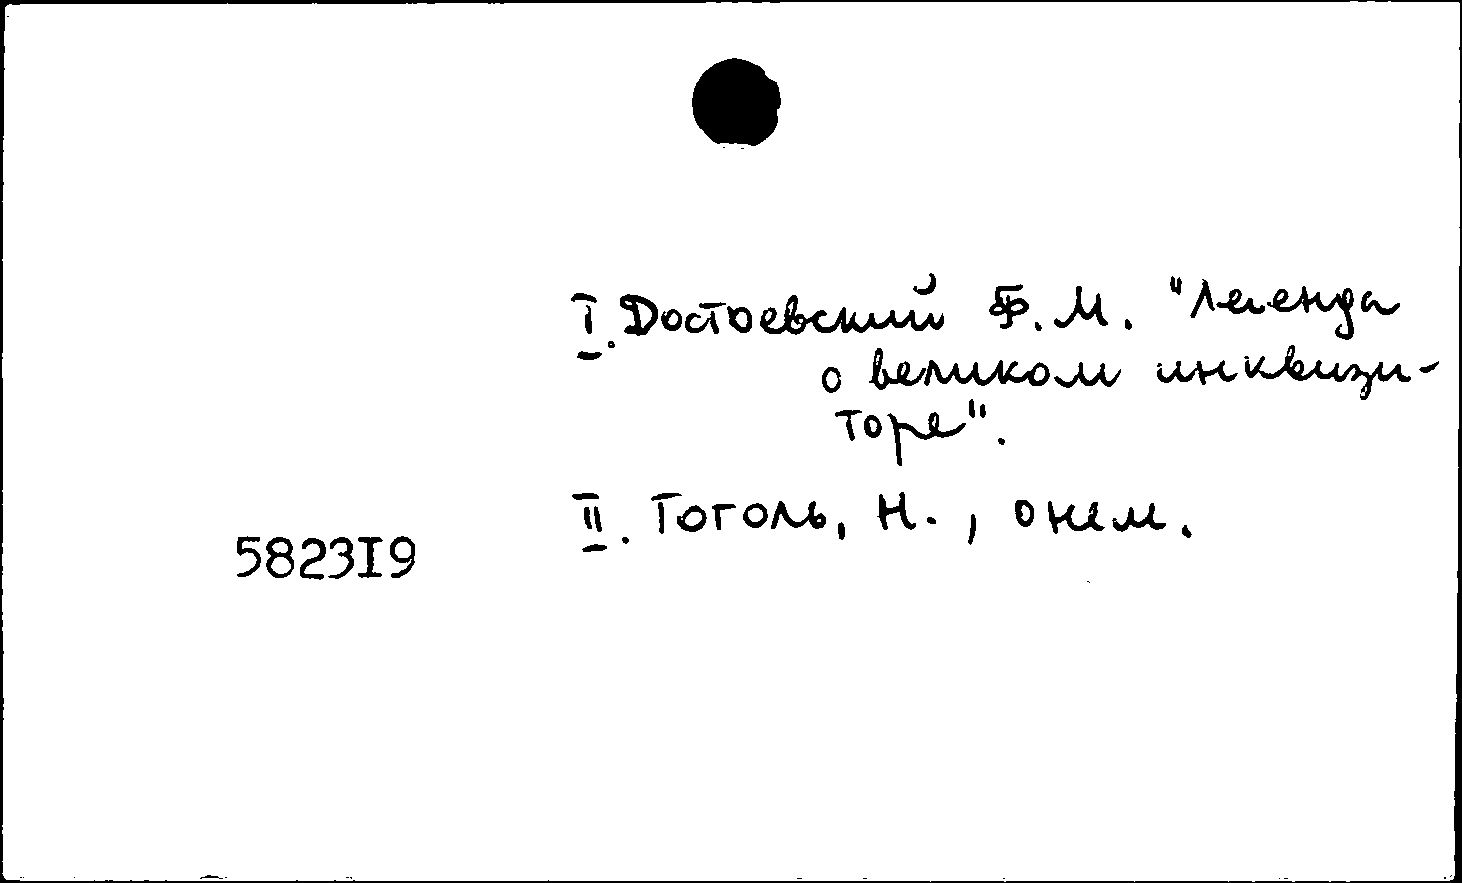 I. Достоевский Ф. М. "Легенда
о великом инквизи-
торе".
II. Гоголь, Н. , о нем.
5823I9